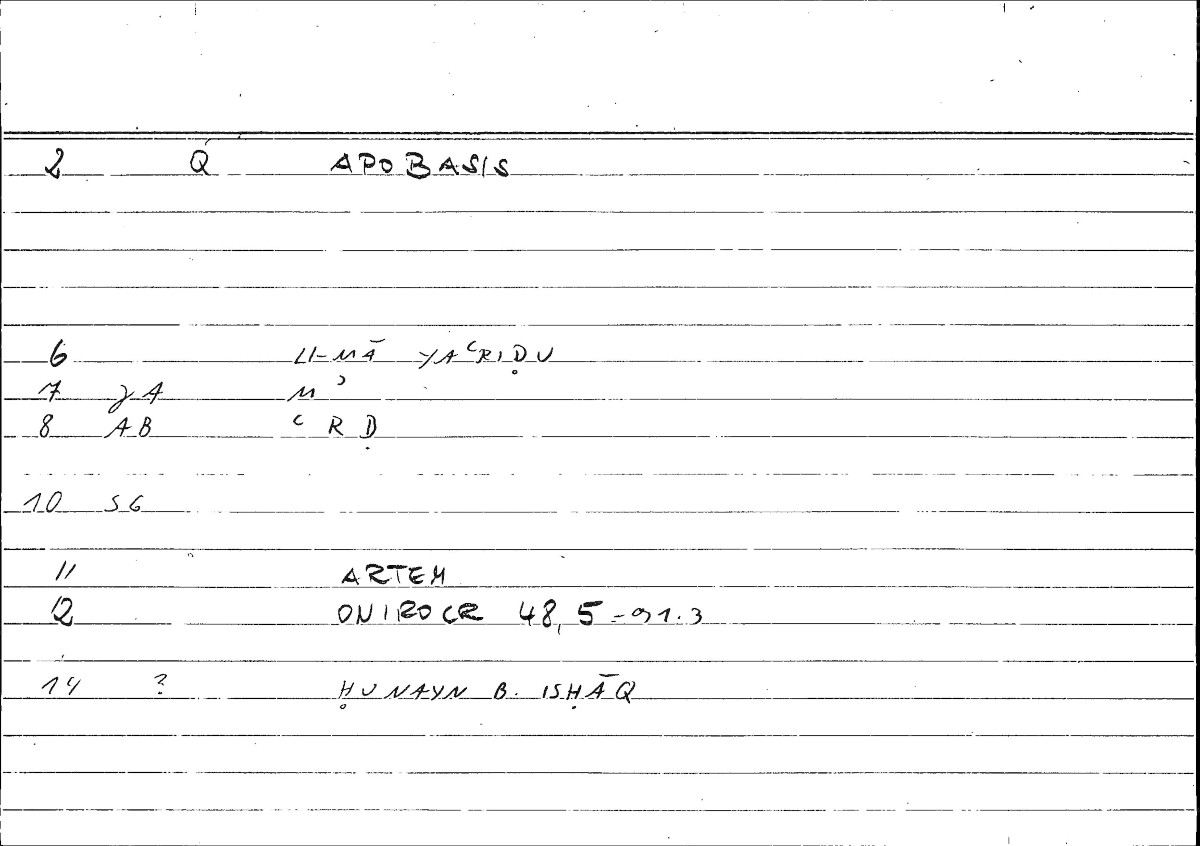 2 Q APOBASIS
6 LI-MĀ YAʿRIḌU
7 γA Mʾ
8 AB ʿRḌ
10 SG
11 ARTEM
12 ONIROCR 48,5-91.3
14 ? ḤUNAYN B. ISḤĀQ